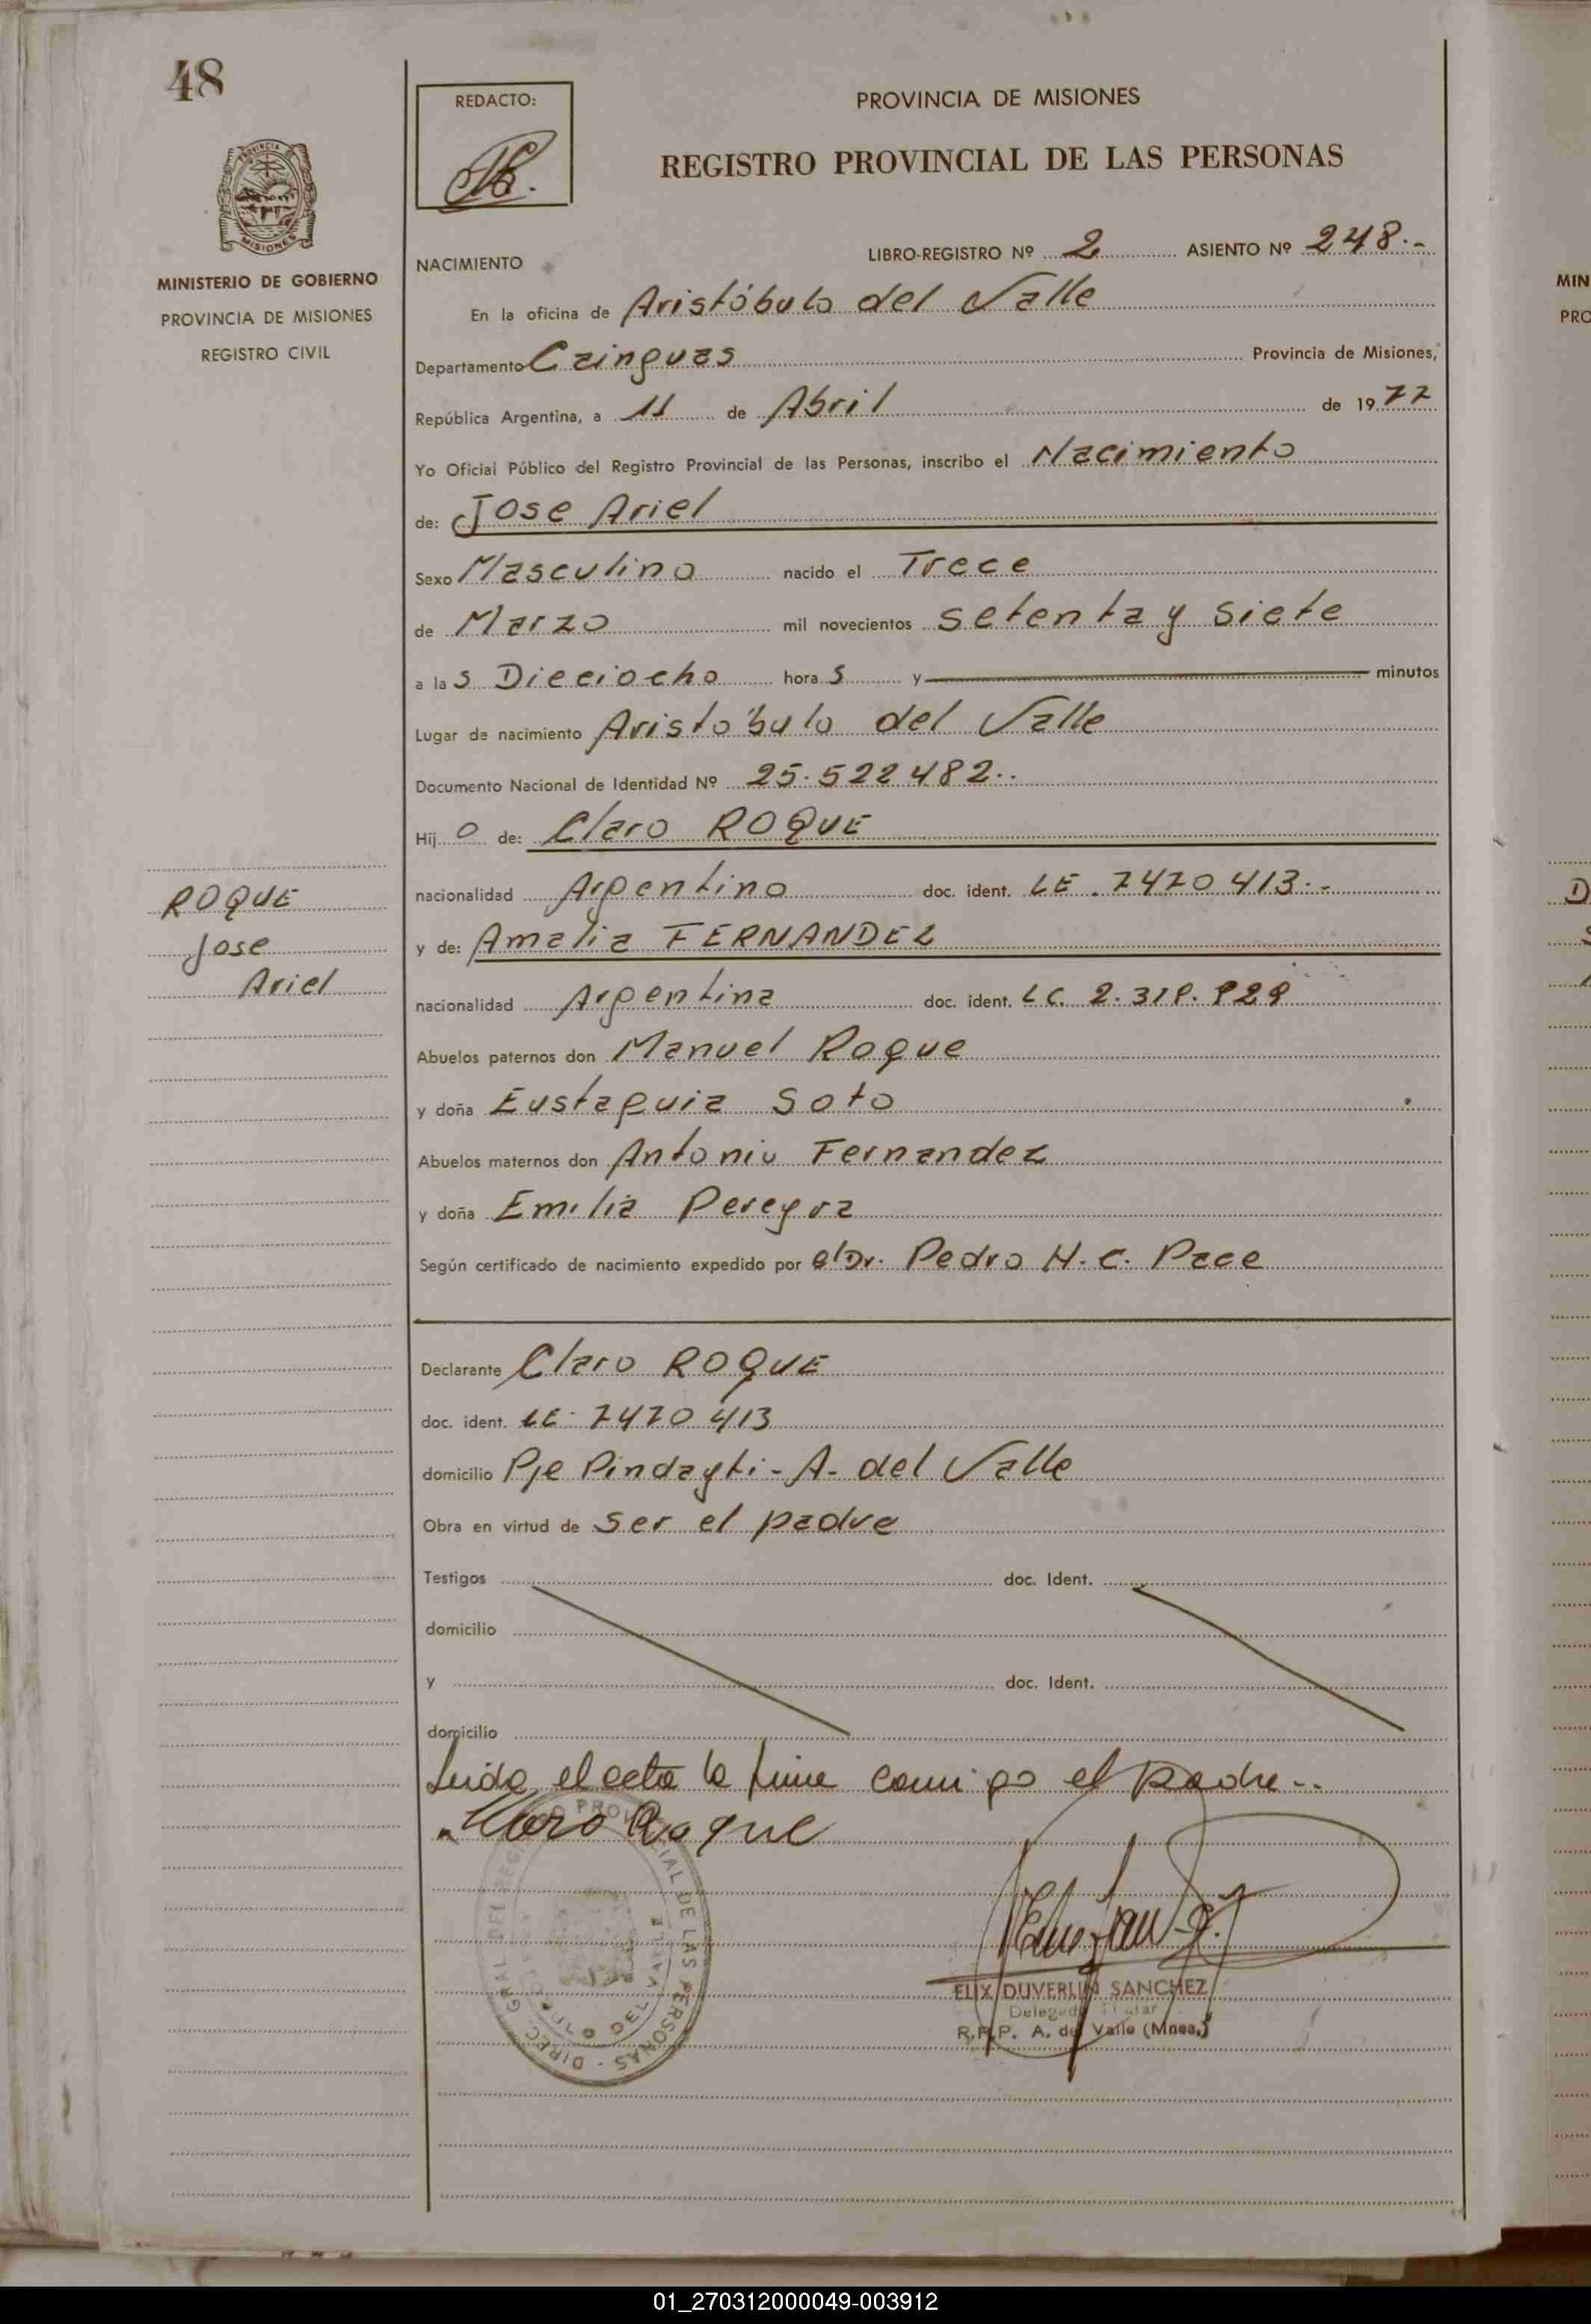 48
REDACTO:
PROVINCIA DE MISIONES
REGISTRO PROVINCIAL DE LAS PERSONAS
PROVINCIA DE
MISIONES
MINISTERIO DE GOBIERNO
PROVINCIA DE MISIONES
REGISTRO CIVIL
NACIMIENTO
LIBRO-REGISTRO Nº 2 ASIENTO Nº 248.-
En la oficina de Aristóbulo del Valle
Departamento Cainguas Provincia de Misiones,
República Argentina, a 11 de Abril de 1977
Yo Oficial Público del Registro Provincial de las Personas, inscribo el Nacimiento
de: Jose Ariel
Sexo Masculino nacido el Trece
de Marzo mil novecientos setenta y siete
a las Dieciocho horas y minutos
Lugar de nacimiento Aristóbulo del Valle
Documento Nacional de Identidad Nº 25.522482..
Hijo de: Claro ROQUE
nacionalidad Argentino doc. ident. LE. 7470413.-
y de: Amalia FERNANDEZ
nacionalidad Argentina doc. ident. LC.
Abuelos paternos don Manuel Roque
y doña Eustaquia Soto
Abuelos maternos don Antonio Fernandez
y doña Emilia Pereyra
Según certificado de nacimiento expedido por el Dr. Pedro H. C. Pace
ROQUE
Jose
Ariel
Declarante Claro ROQUE
doc. ident. LE. 7470413
domicilio Pje Pindayti - A. del Valle
Obra en virtud de ser el padre
Testigos doc. Ident.
domicilio
y doc. Ident.
domicilio
Leida el acta la firma conmigo el padre..
Claro Roque
DIREC. GRAL DEL REGISTRO PROVINCIAL DE LAS PERSONAS
DEL VALLE
ELIX DUVERLIN SANCHEZ
Delegado Titular
R.P.P. A. del Valle (Mnes.)
MIN
PRO
01_270312000049-003912